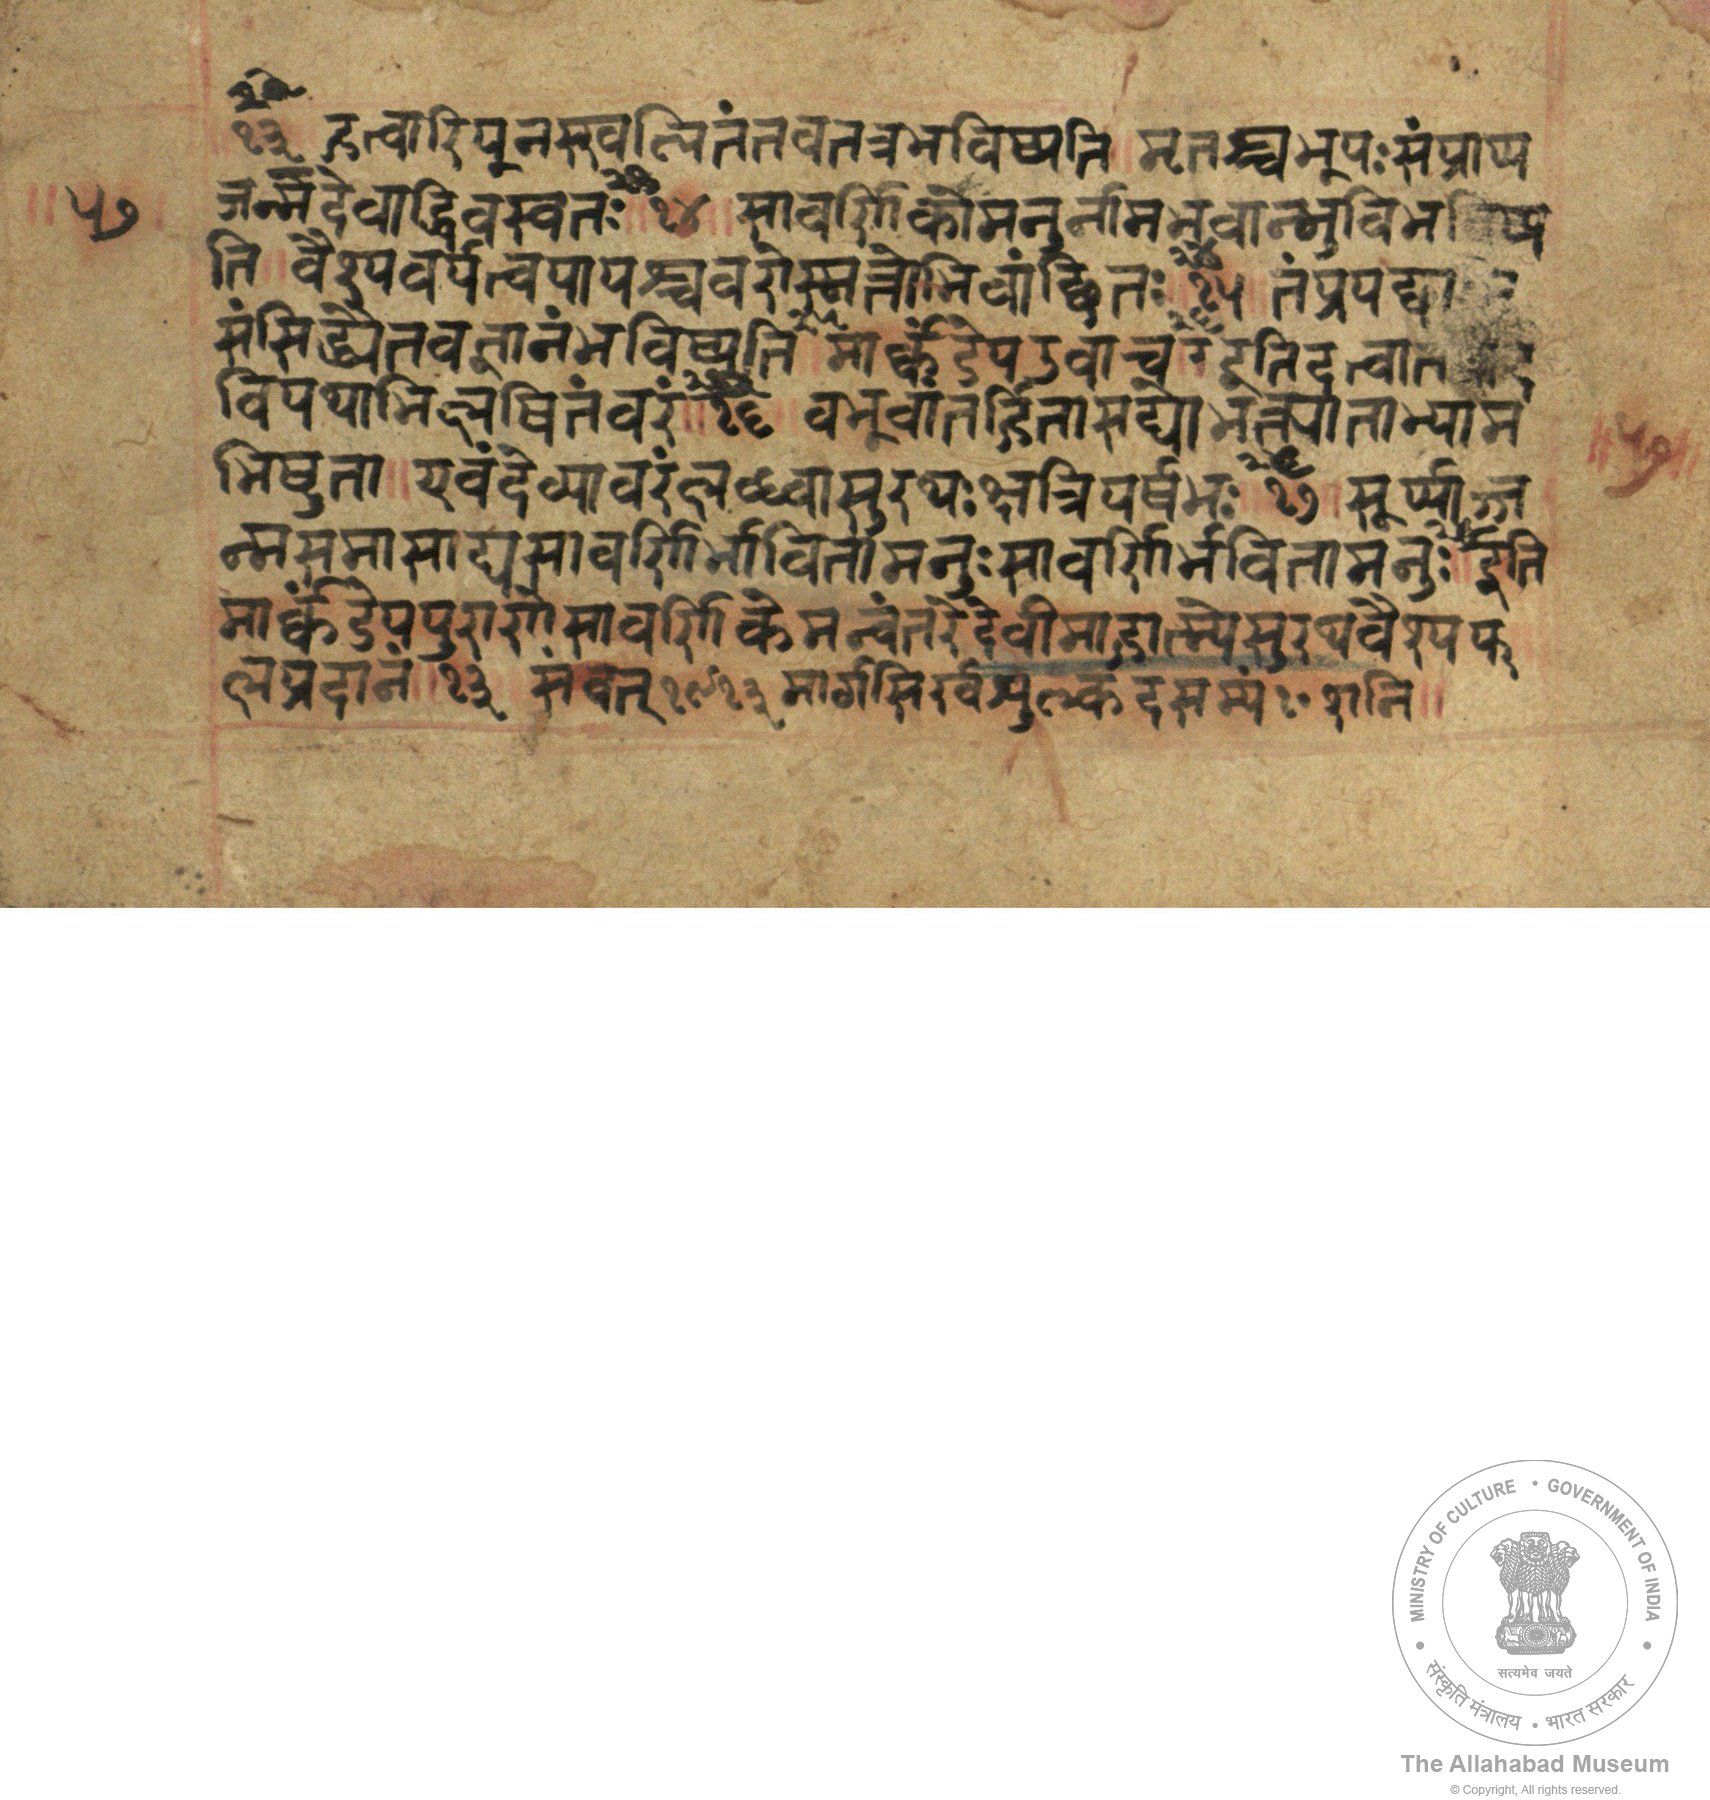 १३ हत्वारिपूनस्खलितंतवतत्रभविष्यति ॥ मृतश्चभूपःसंप्राप्य
॥ ५७ ॥ जन्मदेवाद्विवस्वतः ॥ १४ ॥ सावर्णिकोमनुर्नामभवान्भुविभविष्य
ति ॥ वैश्यवर्यत्वयायश्चवरोस्मत्तोभिवांछितः ॥ १५ तंप्रयछा
संसिद्ध्यैतवज्ञानंभविष्यति ॥ मार्कंडेयउवाच ॥ इतिदत्वात
र्वियथाभिलषितंवरं ॥ १६ बभूवांतर्हितासद्योभक्त्याताभ्याम
भिष्टुता ॥ एवंदेव्यावरंलब्ध्वासुरथःक्षत्रियर्षभः ॥ १७ ॥ सूर्य्याज्ज
॥ ५७ ॥
न्मसमासाद्यसावर्णिर्भवितामनुःसावर्णिर्भवितामनुः ॥ इति
मार्कंडेयपुराणेसावर्णिकेमन्वंतरेदेवीमाहात्म्येसुरथवैश्यफ
लप्रदानं ॥ १३ संवत् १९१३ मार्गसिर्वशुल्कदसम्यं शनि ॥
MINISTRY OF CULTURE • GOVERNMENT OF INDIA
सत्यमेव जयते
संस्कृति मंत्रालय • भारत सरकार
The Allahabad Museum
© Copyright, All rights reserved.